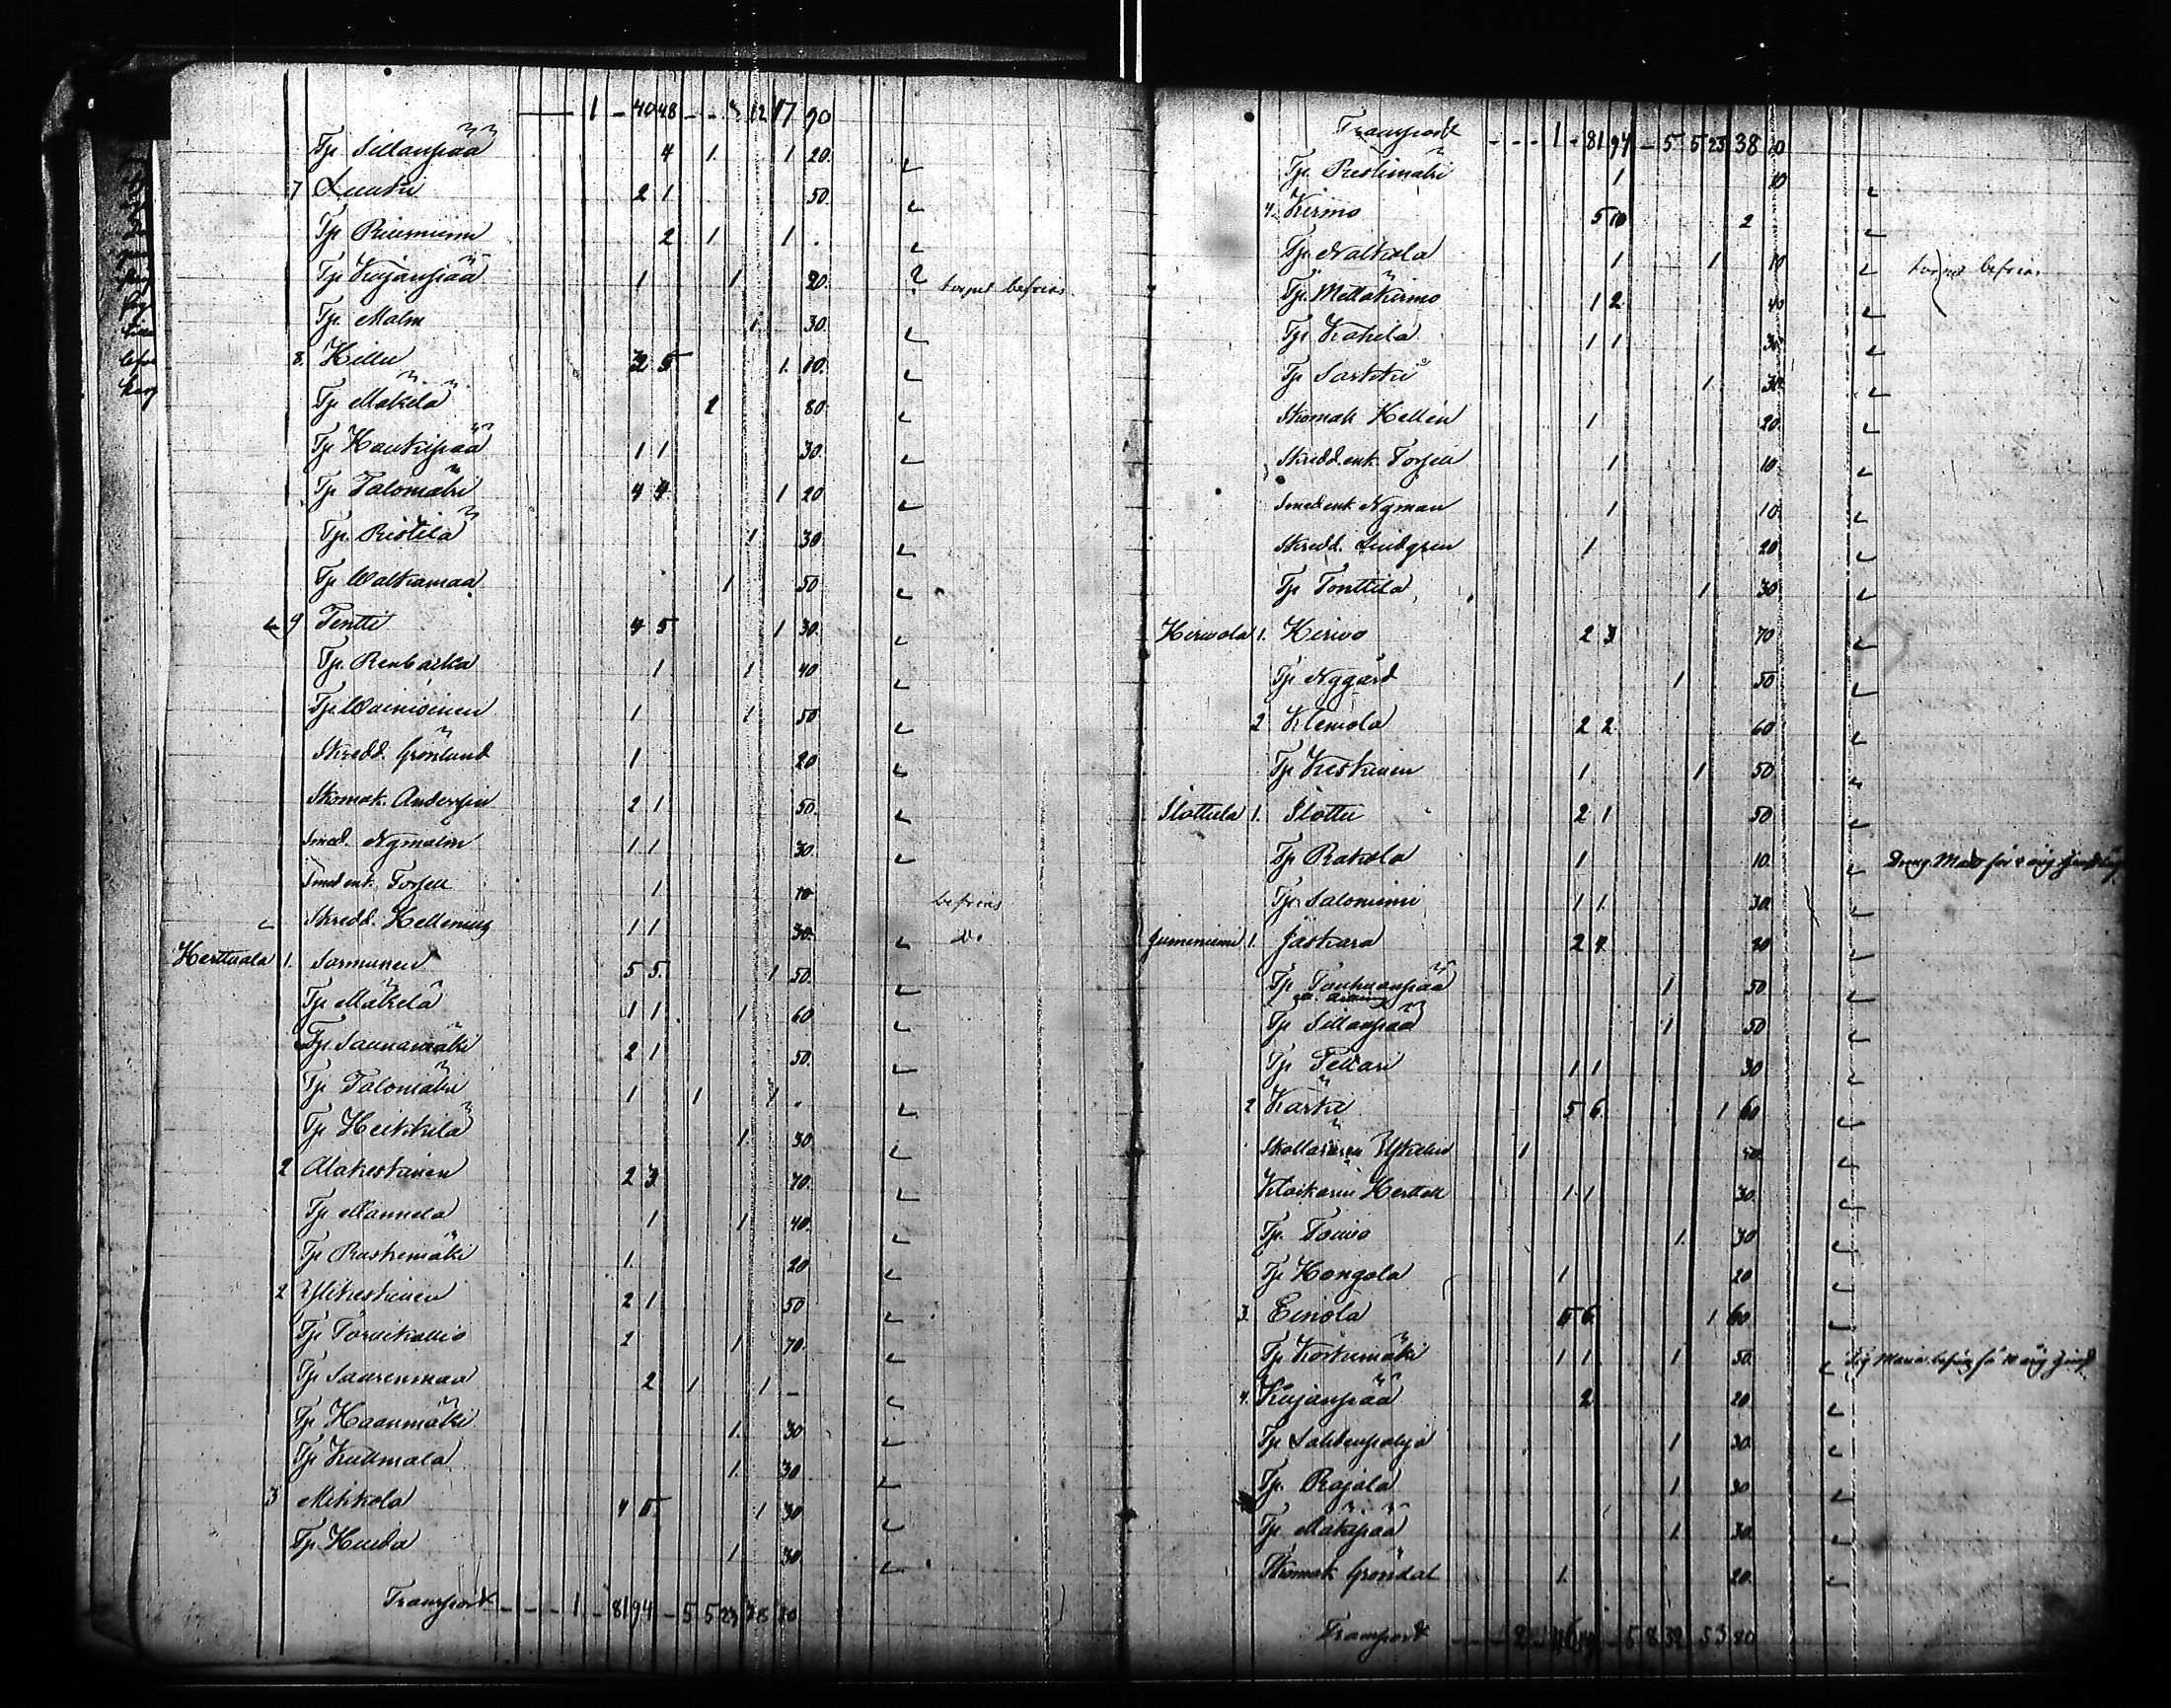 1 - 40 48 - - 3 12 17 90
Tp Sillanpää 4 1. 1 20.
7 Luuki 2 1 50.
Tp Riuniemi 2 1 1 .
Tp Kujanpää 1 1 20. ? torpet befrias
Tp. Malm 1 30.
8. Hillu 2 5 1. 10.
Tp Mäkelä 2 80.
Tp Haukipää 1 1 30.
Tp Talomäki 4 4 1 20
Tp. Ristilä 1 30
Tp Walkamaa 1 50
9 Tentti 4 5 1 30.
Tp. Renbacka 1 1 40
Tp. Wäinioinen 1 1 50
Skredd. Grönlund 1 20
Skomak. Andersin 2 1 50.
Smed. Nymalm 1 1 30.
Smed enk. Forsell 1 10 befrias
Skredd. Hellenius 1 1 30. do
Herttuala 1. Sarmunen 5 5. 1 50.
Tp Mäkelä 1 1 1 60
Tp. Saunamäki 2 1 50.
Tp Talomäki 1 1 1 .
Tp Heikkilä 1. 30
2 Alakeskinen 2 3. 70.
Tp Mannela 1 1 40.
Tp Raskemäki 1. 20
2 Ylikeskinen 2 1 50
Tp Torwikallio 2 1. 70.
Tp Saarenmaa 2 1 1 -
Tp Haanmäki 1. 30
Tp Kullmala 1. 30
3 Mikkola 4 5. 1 30
Tp. Hueda 1. 30.
Transport - - - 1 - 81 94 - 5 5 23 38 10
Transport - - - 1 - 81 94 - 5 5 23 38 10
Tp. Ristimäki 1 10
4. Kirmo 5 10 2
Tp. Nalkala 1 1 10 torpet befrias
Tp. Mettäkirmo 1 2 40
Tp Kakila 1 1 30
Tp Sarkku 1 30.
Skomak Hellén 1 20.
Skredd. enk. Forsell 1 10.
Smed enk Nyman 1 10
Skredd. Lindgren 1 20
Tp Tonttila 1 30
Hirwola 1. Hirwo 2 3 70
Tp Nygård 1 50
2 Klemola 2 2 60
Tp Keskinen 1 1 50
Slottila 1. Slotti 2 1 50
Tp Rakola 1 10.
Tp. Saloniemi 1 1. 30.
1. Jaskara 2 4. 80
Tp Tanhuanpää 1 50
Tp Sillanpää 1 50
Tp Pellari 1 1 30
2 Kärki 5 6. 1 60
Skolläraren 1 40
Klockarin Herttell 1 1 30
Tp. Toiwo 1. 30
Tp Hongola 1 20
3. Einola 5 6. 1 60
Tp Koskimäki 1 1. 1 50.
4. Kujanpää 2 20
Tp Lahdenpohja 1 30.
Tp. Rajala 1 30
Tp. Mäkipää 1. 30.
Skomak Gröndal 1. 20.
Transport - - - 2 - - 5 8 32 53 80